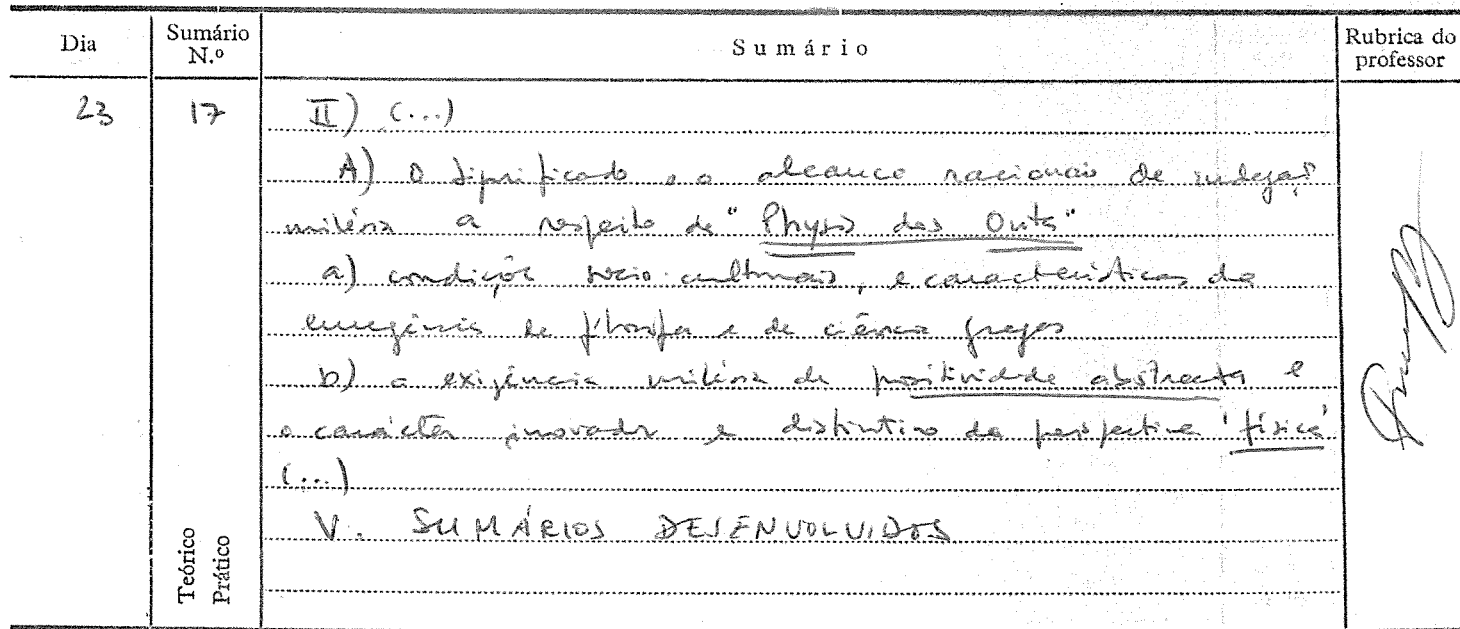 Dia Sumário N.º Sumário Rubrica do professor
23 17 II) (...)
A) O significado e o alcance racionais da indagação
milésia a respeito da "Physis dos Onta"
a) condições socio-culturais, e características da
emergência da filosofia e da ciência gregas
b) a exigência milésia de positividade abstracta e
o carácter inovador e distintivo da perspectiva 'física'
(...)
V. SUMÁRIOS DESENVOLVIDOS
Teórico
Prático